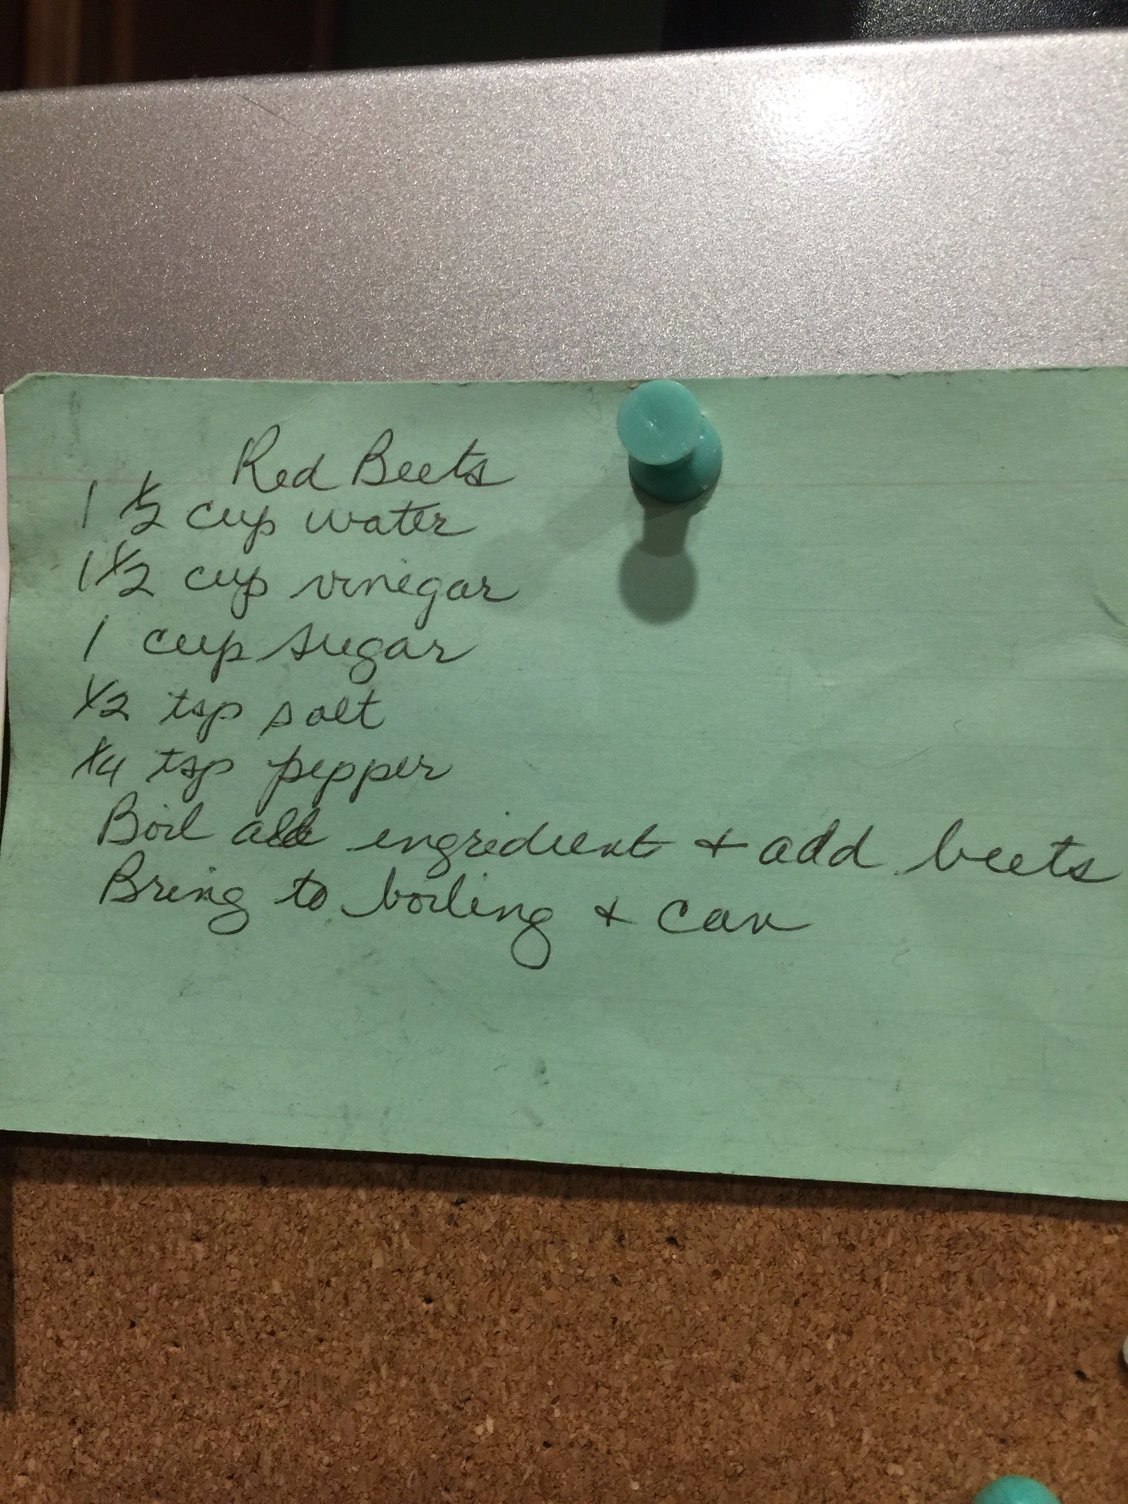 Red Beets
1 1/2 cup water
1 1/2 cup vinegar
1 cup sugar
1/2 tsp salt
1/4 tsp pepper
Boil all engredient + add beets
Bring to boiling + can